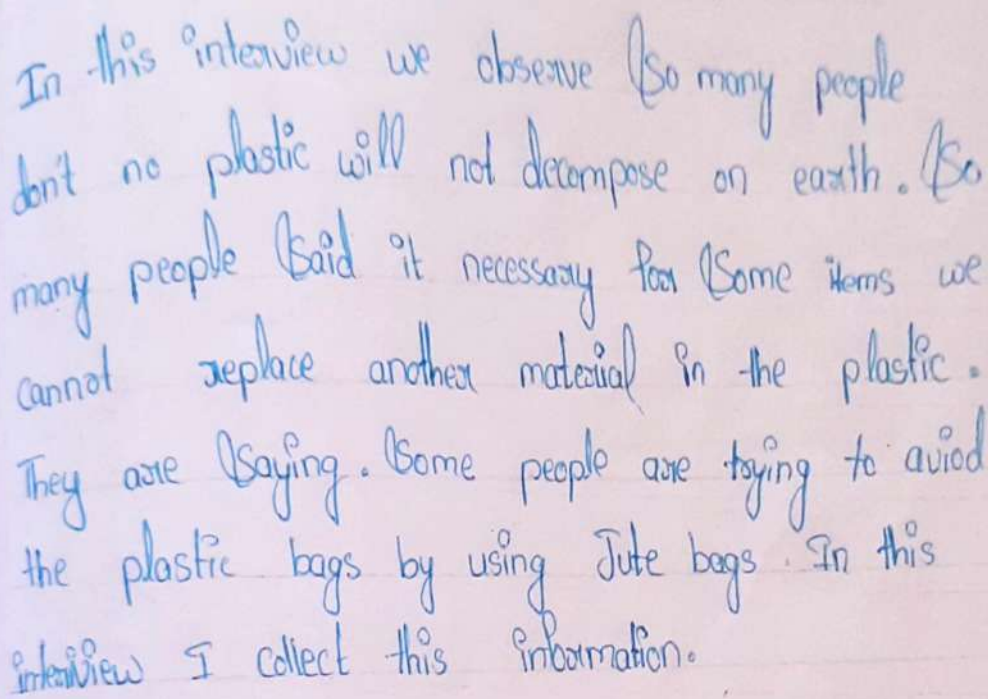 In this interview we observe So many people
don't no plastic will not decompose on earth. So
many people Said it necessary for Some items we
cannot replace another material in the plastic.
They are Saying. Some people are trying to aviod
the plastic bags by using Jute bags. In this
interview I collect this information.